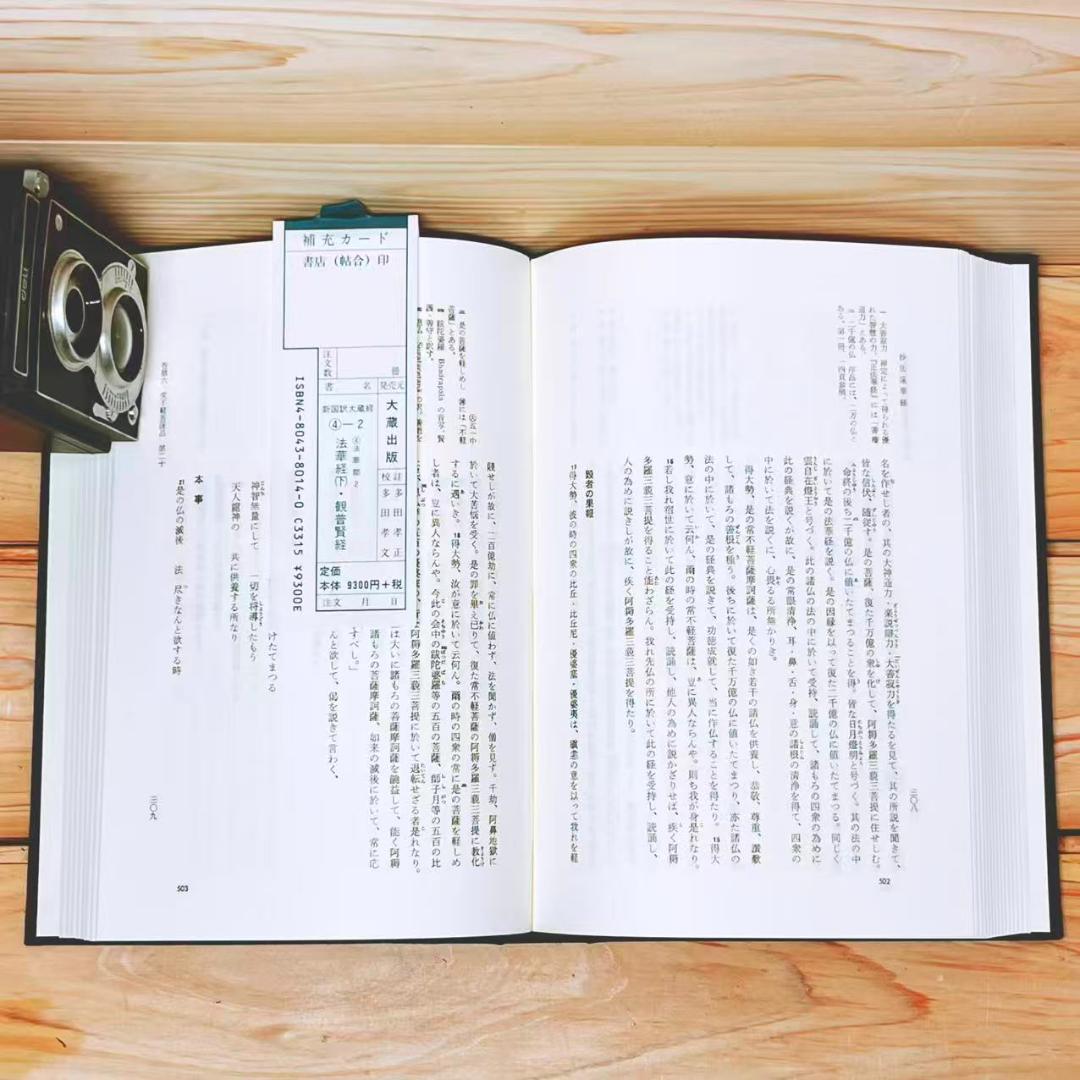 妙法蓮華経
三〇八
名を作せし者の、其の大神通力・楽説辯力・大善寂力を得たるを見て、其の所説を聞きて、
皆な信伏、随従す。是の菩薩、復た千万億の衆を化して、阿耨多羅三藐三菩提に住せしむ。
命終の後ち二千億の仏に値いたてまつることを得。皆な日月燈明と号づく。其の法の中
に於いて是の法華経を説く。是の因縁を以って復た二千億の仏に値いたてまつる。同じく
雲自在燈王と号づく。此の諸仏の法の中に於いて受持、読誦して、諸もろの四衆の為めに
此の経典を説くが故に、是の常眼清浄、耳・鼻・舌・身・意の諸根の清浄を得て、四衆の
中に於いて法を説くに、心畏るる所無かりき。
得大勢、是の常不軽菩薩摩訶薩は、是くの如き若干の諸仏を供養し、恭敬、尊重、讃歎
して、諸もろの善根を種う。後ちに於いて復た千万億の仏に値いたてまつり、亦た諸仏の
法の中に於いて、是の経典を説きて、功徳成就して、当に作仏することを得たり。15得大
勢、意に於いて云何ん、爾の時の常不軽菩薩は、豈に異人ならんや。則ち我が身是れなり。
16若し我れ宿世に於いて此の経を受持し、読誦し、他人の為めに説かざりせば、疾く阿耨
多羅三藐三菩提を得ること能わざらん。我れ先仏の所に於いて此の経を受持し、読誦し、
人の為めに説きしが故に、疾く阿耨多羅三藐三菩提を得たり。
毀者の果報
17得大勢、彼の時の四衆の比丘・比丘尼・優婆塞・優婆夷は、瞋恚の意を以って我れを軽
一 大善寂力 禅定によって得られる優
れた智慧の力。『正法華経』には「善権
迦力」とある。
二千億の仏
ある。第一冊、
502
賤せしが故に、二百億劫に、常に仏に値わず、法を聞かず、僧を見ず。千劫、阿鼻地獄に
於いて大苦悩を受く。是の罪を畢え已りて、復た常不軽菩薩の阿耨多羅三藐三菩提に教化
するに遇いき。18得大勢、汝が意に於いて云何ん。爾の時の四衆の常に是の菩薩を軽しめ
し者は、豈に異人ならんや。今此の会中の跋陀婆羅等の五百の菩薩、師子月等の五百の比
阿耨多羅三藐三菩提に於いて退転せざる者是れなり。
は大いに諸もろの菩薩摩訶薩を饒益して、能く阿耨
諸もろの菩薩摩訶薩、如来の滅後に於いて、常に応
すべし。」
んと欲して、偈を説きて言わく、
是の菩薩を軽しめし
菩薩」とある。
跋陀婆羅 Bhadrapāla の音写。賢
護・善守と訳す。
補充カード
書店(帖合)印
注文数
冊
書名
発売元
新国訳大蔵経
④―2
法華経(下)・観普賢経
大蔵出版
校註
多田孝正
多田孝文
定価
本体 9300円+税
注文 月 日
ISBN4-8043-8014-0 C3315 ¥9300E
けたてまつる
神智無量にして 一切を将導したもう
天人龍神の 共に供養する所なり
本事
21是の仏の滅後 法 尽きなんと欲する時
常不軽菩薩品 第二十
三〇九
503